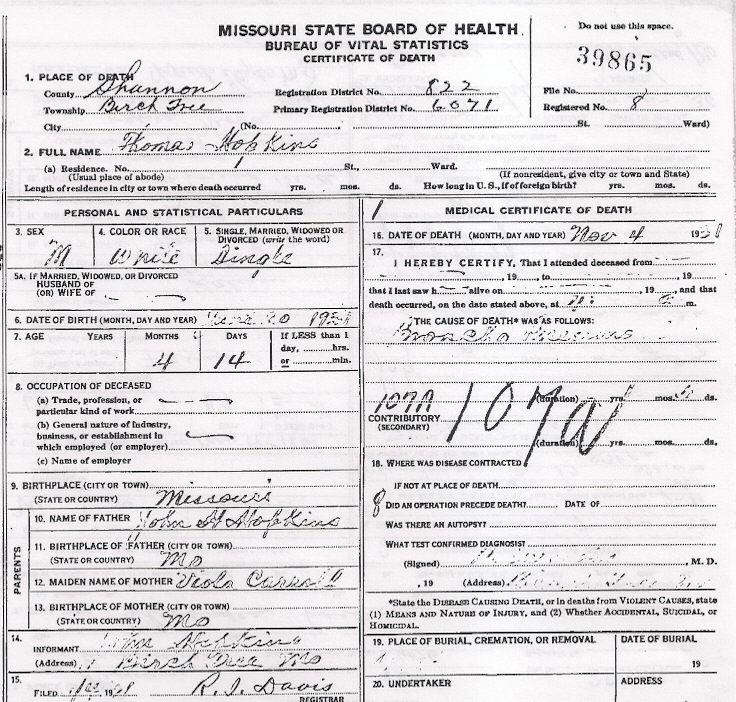 MISSOURI STATE BOARD OF HEALTH
BUREAU OF VITAL STATISTICS
CERTIFICATE OF DEATH
Do not use this space.
39865
1. PLACE OF DEATH
County Shannon Registration District No. 822 File No.
Township Birch Tree Primary Registration District No. 6071 Registered No. 8
City (No. St. Ward)
2. FULL NAME Thomas Hopkins
(a) Residence. No. St., Ward.
(Usual place of abode) (If nonresident, give city or town and State)
Length of residence in city or town where death occurred yrs. mos. ds. How long in U.S., if of foreign birth? yrs. mos. ds.
PERSONAL AND STATISTICAL PARTICULARS
3. SEX 4. COLOR OR RACE 5. SINGLE, MARRIED, WIDOWED OR DIVORCED (write the word)
M White Single
5A. IF MARRIED, WIDOWED, OR DIVORCED
HUSBAND OF
(OR) WIFE OF
6. DATE OF BIRTH (MONTH, DAY AND YEAR)
7. AGE YEARS MONTHS DAYS If LESS than 1
day, hrs.
or min.
4 14
8. OCCUPATION OF DECEASED
(a) Trade, profession, or
particular kind of work
(b) General nature of industry,
business, or establishment in
which employed (or employer)
(c) Name of employer
9. BIRTHPLACE (CITY OR TOWN)
(STATE OR COUNTRY) Missouri
PARENTS
10. NAME OF FATHER John H Hopkins
11. BIRTHPLACE OF FATHER (CITY OR TOWN)
(STATE OR COUNTRY) Mo
12. MAIDEN NAME OF MOTHER Viola
13. BIRTHPLACE OF MOTHER (CITY OR TOWN)
(STATE OR COUNTRY) Mo
14.
INFORMANT John Hopkins
(Address) Birch Tree Mo
15.
FILED 19 R. I. Davis
REGISTRAR
MEDICAL CERTIFICATE OF DEATH
16. DATE OF DEATH (MONTH, DAY AND YEAR) Nov 4 19
17.
I HEREBY CERTIFY, That I attended deceased from
, 19 , to , 19
that I last saw h alive on , 19 , and that
death occurred, on the date stated above, at m.
THE CAUSE OF DEATH* WAS AS FOLLOWS:
Broncho
(duration) yrs. mos. ds.
107A 107a
CONTRIBUTORY
(SECONDARY)
(duration) yrs. mos. ds.
18. WHERE WAS DISEASE CONTRACTED
IF NOT AT PLACE OF DEATH
8 DID AN OPERATION PRECEDE DEATH? DATE OF
WAS THERE AN AUTOPSY?
WHAT TEST CONFIRMED DIAGNOSIS?
(Signed) , M. D.
, 19 (Address)
*State the DISEASE CAUSING DEATH, or in deaths from VIOLENT CAUSES, state
(1) MEANS AND NATURE OF INJURY, and (2) Whether ACCIDENTAL, SUICIDAL, or
HOMICIDAL.
19. PLACE OF BURIAL, CREMATION, OR REMOVAL DATE OF BURIAL
19
20. UNDERTAKER ADDRESS